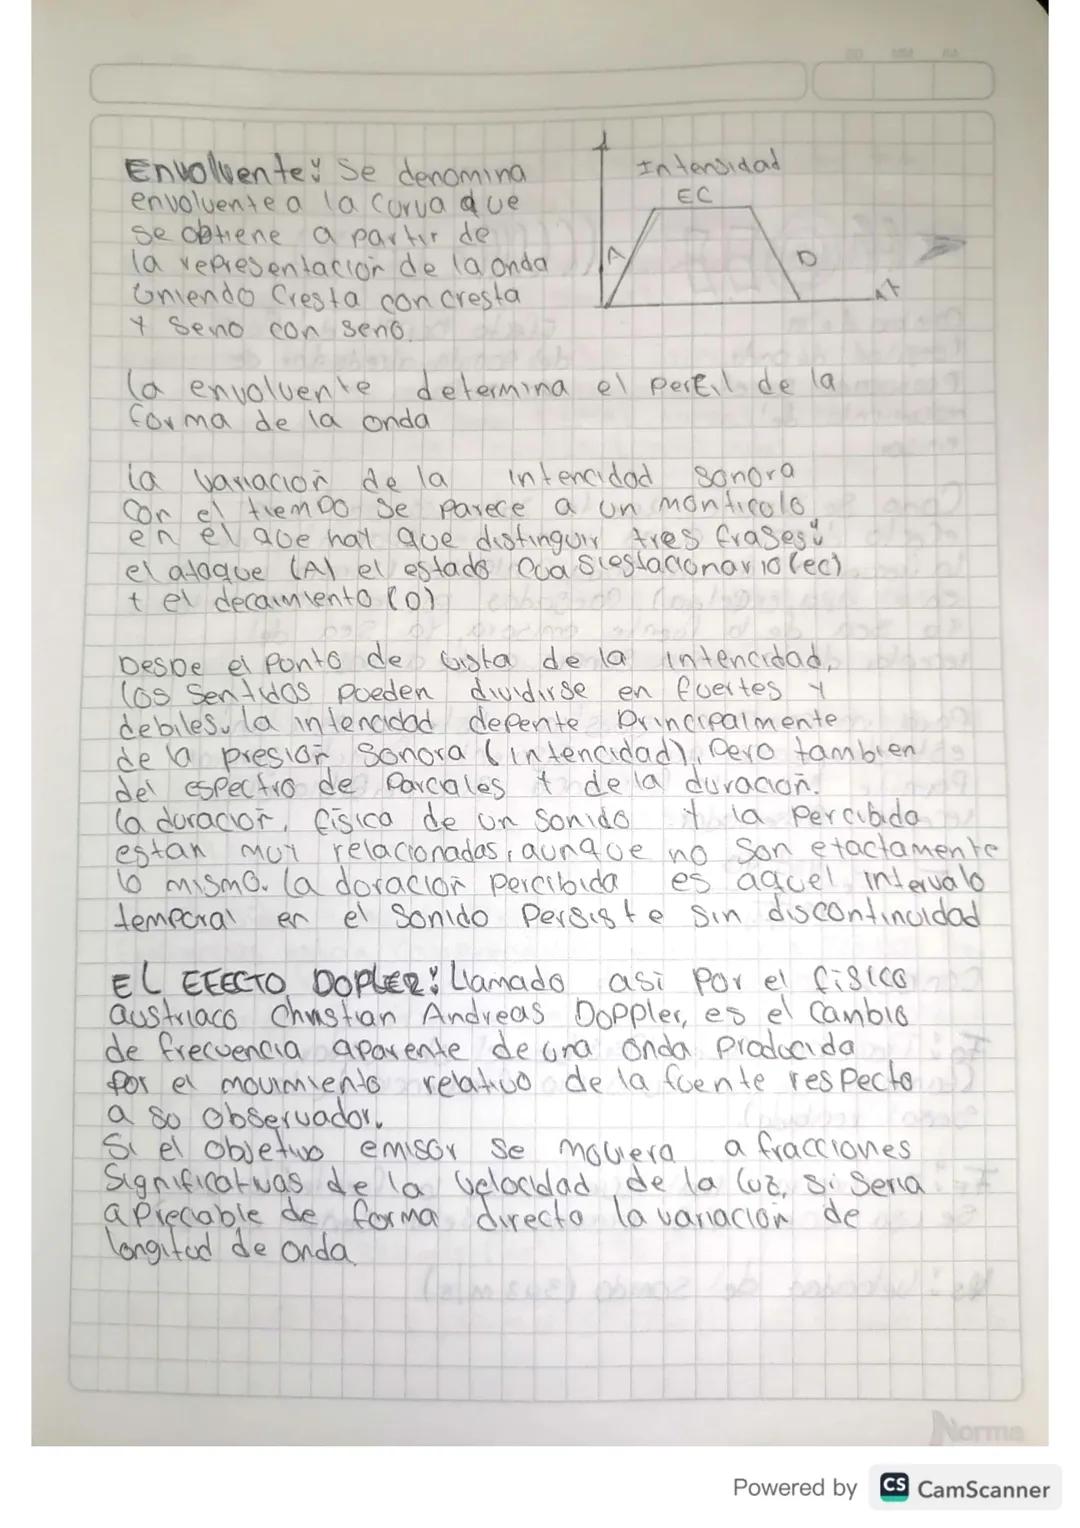 Envolvente: Se denomina
envolvente a la curva que
se obtiene a partir de
la representación de la onda
Uniendo Cresta con cresta
y Seno con seno.
Intensidad
EC
A
D
t
la envolvente determina el perfil de la
forma de la onda
la variación de la intencidad sonora
Con el tiempo se parece a un monticolo
en el que hay que distinguir tres frases:
el ataque (A) el estado cuasiestacionario (ec)
y el decaimiento (D)
Desde el punto de vista de la intencidad,
los Sentidos pueden dividirse en fuertes y
debiles. la intencidad depente principalmente
de la presión Sonora (intencidad), Pero tambien
del espectro de Parciales y de la duración.
la duración, física de un sonido y la percibida
estan muy relacionadas, aunque no son etactamente
lo mismo. la duración percibida es aquel intervalo
temporal en el Sonido Persiste sin discontinuidad
EL EFECTO DOPLER: Llamado asi por el físico
austriaco Christian Andreas Doppler, es el Cambio
de frecuencia aparente de una onda Producida
por el movimiento relativo de la fuente respecto
a so observador.
Si el objetivo emisor se moviera a fracciones
Significativas de la velocidad de la luz, si seria
apreciable de forma directo la variación de
longitud de onda
Norma
Powered by CS CamScanner